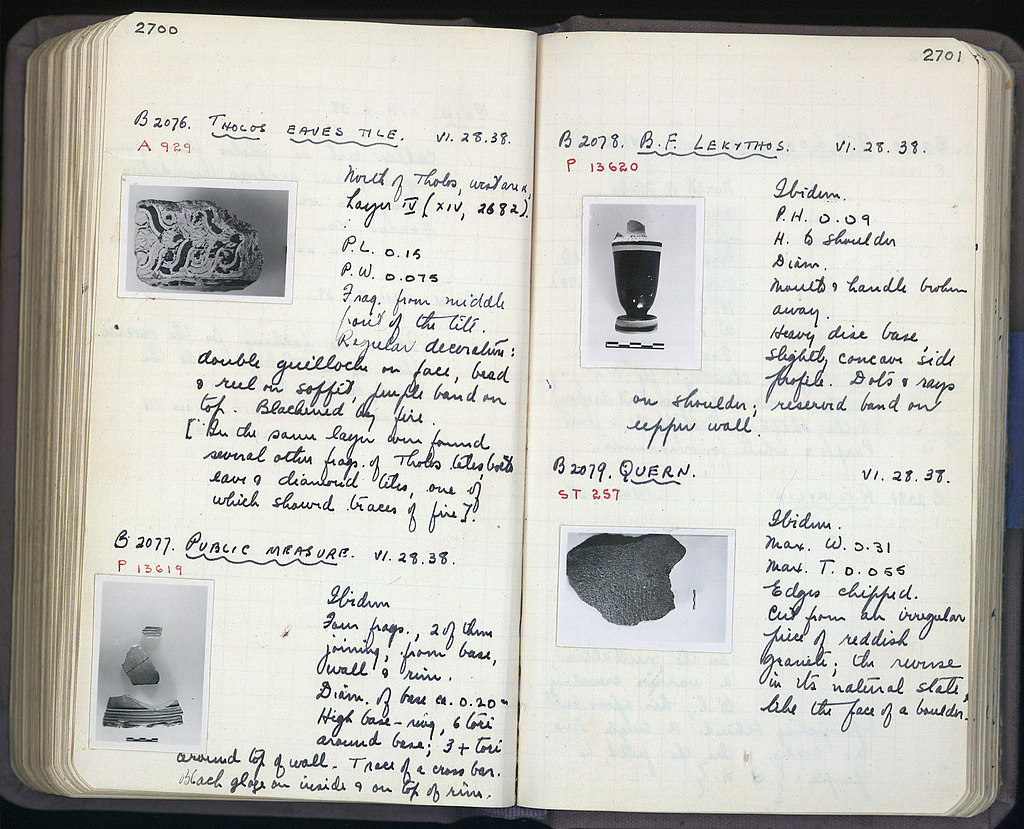 2700
B 2076. THOLOS EAVES TILE. VI.28.38.
A 929
North of Tholos, west area,
Layer IV (XIV, 2682).
P.L. 0.15
P.W. 0.075
Frag. from middle
part of the tile.
Regular decoration:
double guilloche on face, bead
& reel on soffit, purple band on
top. Blackened by fire.
[In the same layer were found
several other frags. of Tholos tiles, both
eave & diamond tiles, one of
which showed traces of fire].
B 2077. PUBLIC MEASURE. VI.28.38.
P 13619
Ibidem
Four frags., 2 of them
joining, from base,
wall & rim.
Diam. of base ca. 0.20
High base-ring, 6 tori
around base; 3+ tori
around top of wall. Trace of a cross bar.
Black glaze on inside & on top of rim.
2701
B 2078. B.F. LEKYTHOS. VI.28.38.
P 13620
Ibidem.
P.H. 0.09
H. to shoulder
Diam.
Mouth & handle broken
away.
Heavy disc base,
slightly concave side
profile. Dots & rays
on shoulder; reserved band on
upper wall.
B 2079. QUERN. VI.28.38.
ST 257
Ibidem.
Max. W. 0.31
Max. T. 0.055
Edges chipped.
Cut from an irregular
piece of reddish
granite; the reverse
in its natural state,
like the face of a boulder.